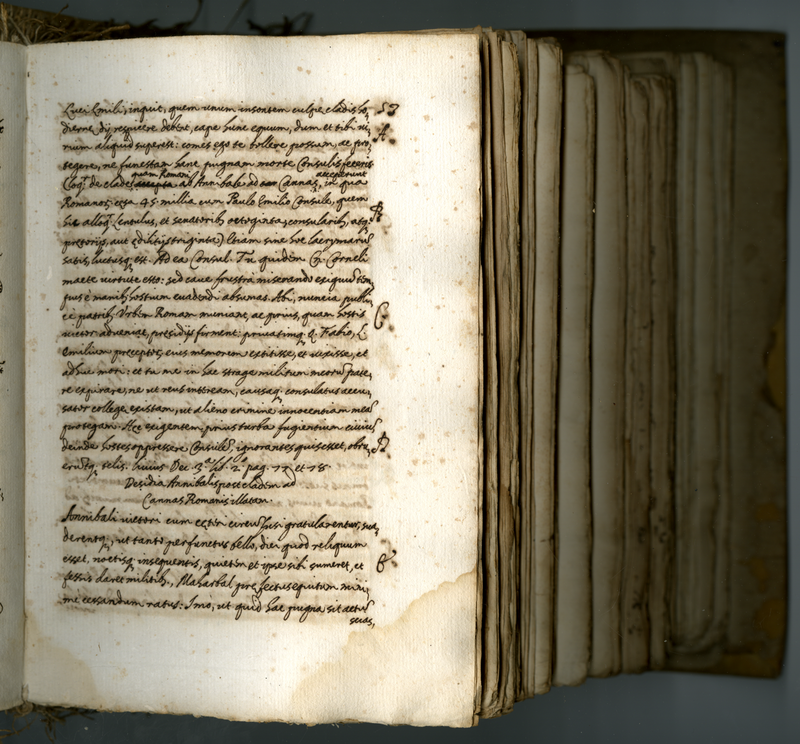 Luci Emili, inquit, quem unum insontem culpę cladis ho, 53
diernę, dij respicere debent, cape hunc equum, dum et tibi vi, A
rium aliquid superest: comes ego te tollere possum, ac pro,
tegere, ne funestam hanc pugnam morte Consulis feceris
quam Romani acceperunt
(loqr. de clade accepta ab Annibale ad Cannas, in qua
Romanos cęsa 45. millia cum Paulo Emilio Consule, quem
hic alloqr. Lentulus, et senatorib, octoginta, consularib, atq, B
pretorijs, aut ędilitijs triginta) Etiam sine hoc lacrymarũ
satis, luctusq, est. Ad ea Consul. Tu quidem Cn. Corneli
macte virtute esto: sed cave frustra miserando exiguũ tem,
pus è manib, hostium evadendi absumas. Abi, nuncia publi,
cè patrib, Urbem Romam muniant, ac prius, quam hostis C
victor adveniat, presidijs firment: privatimq, Q. Fabio, L.
Emilium preceptor, eius memorem extitisse, et vixisse, et
adhuc mori: et tu me in hac strage militum meorũ pate,
re expirare, ne ut reus intream, causaq, consulatus accu,
sator collegę existam, ut alieno crimine innocentiam meã
protegam. Hęc exigentem, prius turba fugientium civiũ
deinde hostes oppressere Consulẽ, ignorantes quis esset, obru, D
erũtq, telis. Livius Dec. 3.ª lib. 2.º pag. 17, et 18.
Desidia Annibalis post cladem ad
Cannas Romanis illatam.
Annibali victori cum cętẽri circũfusi gratularentur, sua,
derentq, ut tanto perfunctus bello, diei quod reliquum
esset, noctisq, insequentis, quietem et ipse sibi sumeret, et E
fessis daret militib, Maharbal pręfectus equitum mini,
me cessandum ratus: Imò, ut quid hac pugna sit actũ
scias,